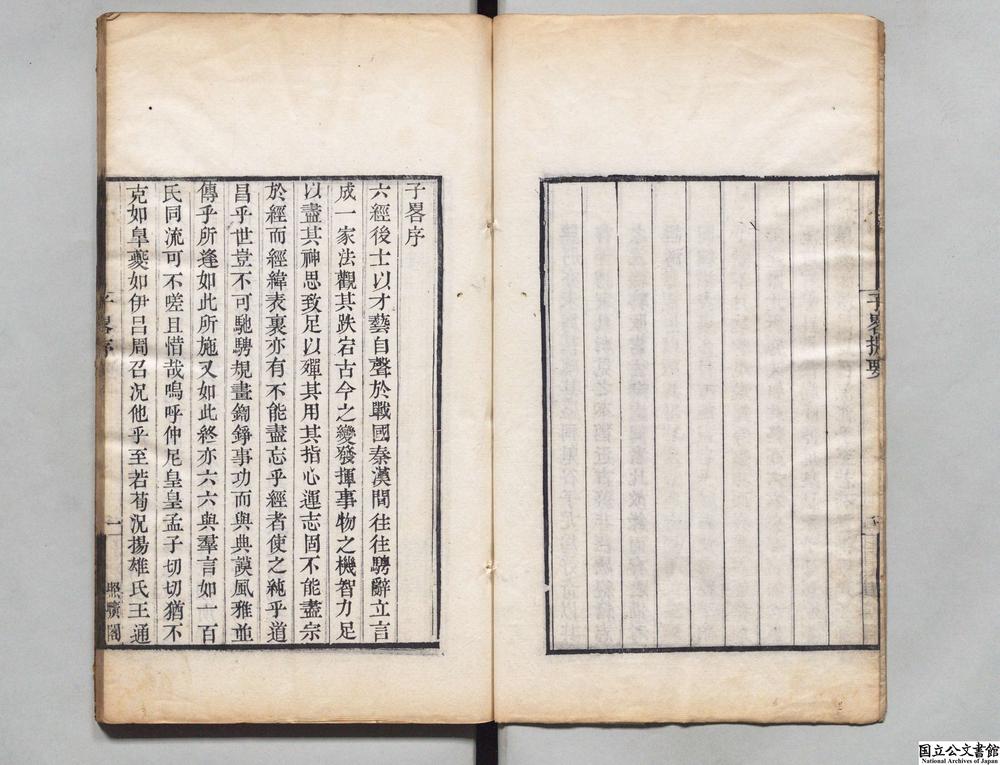 子畧提要
子畧序
六經後士以才藝自聲於戰國秦漢間往往騁辭立言
成一家法觀其跌宕古今之變發揮事物之機智力足
以盡其神思致足以殫其用其指心運志固不能盡宗
於經而經緯表裏亦有不能盡忘乎經者使之純乎道
昌乎世豈不可馳騁規畫鎗錚事功而與典謨風雅並
傳乎所逢如此所施又如此終亦六六與羣言如一百
氏同流可不嗟且惜哉嗚呼仲尼皇皇孟子切切猶不
克如皐夔如伊呂周召況他乎至若荀況揚雄氏王通
子畧序
一
照曠閣
国立公文書館
National Archives of Japan